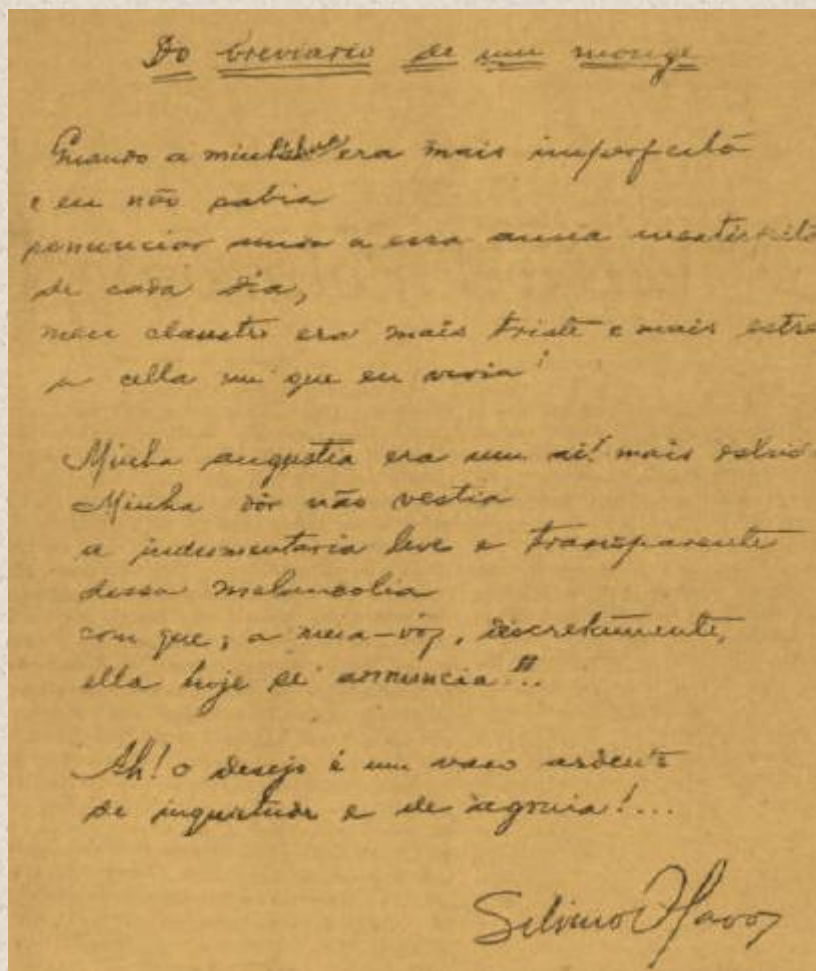 Do breviario de um monge
Quando a minha era mais imperfeita
e eu não sabia
renunciar a essa ansia insatisfeita
de cada dia,
meu claustro era mais triste e mais estre
a cella em que eu vivia!
Minha angustia era um ai! mais
Minha dôr não vestia
a indumentaria leve e transparente
dessa melancolia
com que, a meia-vóz, discretamente,
ella hoje se annuncia!!...
Ah! o desejo é um vaso ardente
de inquietude e de agonia!...
Silvino Olavo